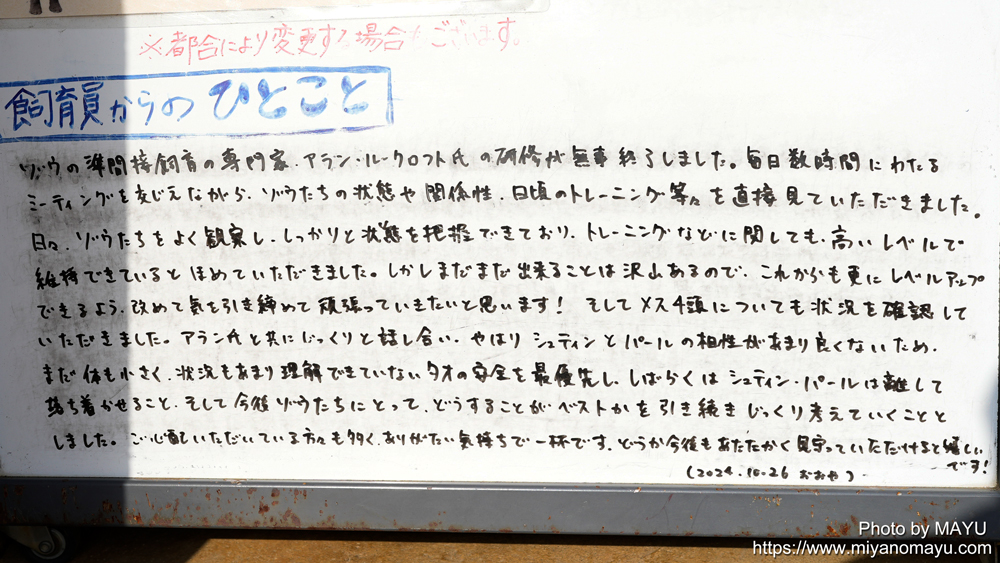 ※都合により変更する場合もございます。
飼育員からのひとこと
ゾウの準間接飼育の専門家、アラン・ルークロフト氏の研修が無事終了しました。毎日数時間にわたる
ミーティングを交じえながら、ゾウたちの状態や関係性、日頃のトレーニング等々を直接見ていただきました。
日々、ゾウたちをよく観察し、しっかりと状態を把握できており、トレーニングなどに関しても、高いレベルで
維持できているとほめていただきました。しかしまだまだ出来ることは沢山あるので、これからも更にレベルアップ
できるよう、改めて気を引き締めて頑張っていきたいと思います！ そしてメス4頭についても状況を確認して
いただきました。アラン氏と共にじっくりと話し合い、やはりシュティンとパールの相性があまり良くないため、
まだ体も小さく、状況もあまり理解できていないタオの安全を最優先し、しばらくはシュティン・パールは離して
落ち着かせること、そして今後ゾウたちにとって、どうすることがベストかを引き続きじっくり考えていくことと
しました。ご心配いただいている方々も多く、ありがたい気持ちで一杯です。どうか今後もあたたかく見守っていただけると嬉しい
です！
（2024.10.26 おおや）
Photo by MAYU
https://www.miyanomayu.com/